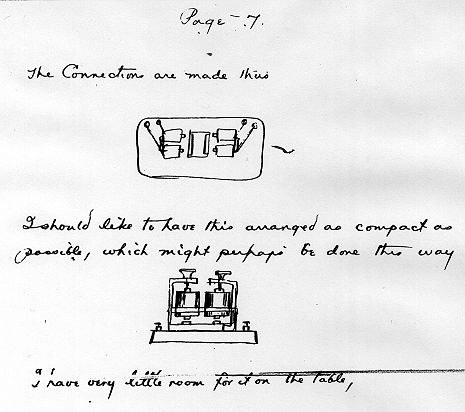 Page 7.
The Connections are made thus
I should like to have this arranged as compact as
possible, which might perhaps be done this way
I have very little room for it on the table,